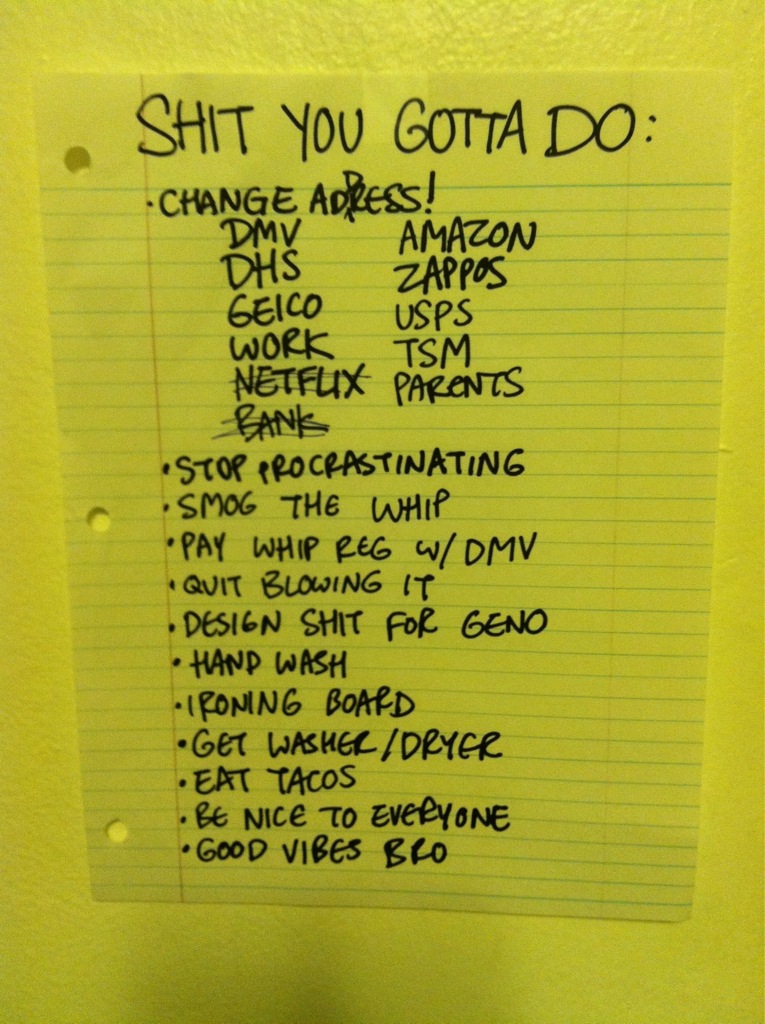 SHIT YOU GOTTA DO:
· CHANGE ADRESS!
DMV AMAZON
DHS ZAPPOS
GEICO USPS
WORK TSM
NETFLIX PARENTS
BANK
· STOP PROCRASTINATING
· SMOG THE WHIP
· PAY WHIP REG W/ DMV
· QUIT BLOWING IT
· DESIGN SHIT FOR GENO
· HAND WASH
· IRONING BOARD
· GET WASHER/DRYER
· EAT TACOS
· BE NICE TO EVERYONE
· GOOD VIBES BRO